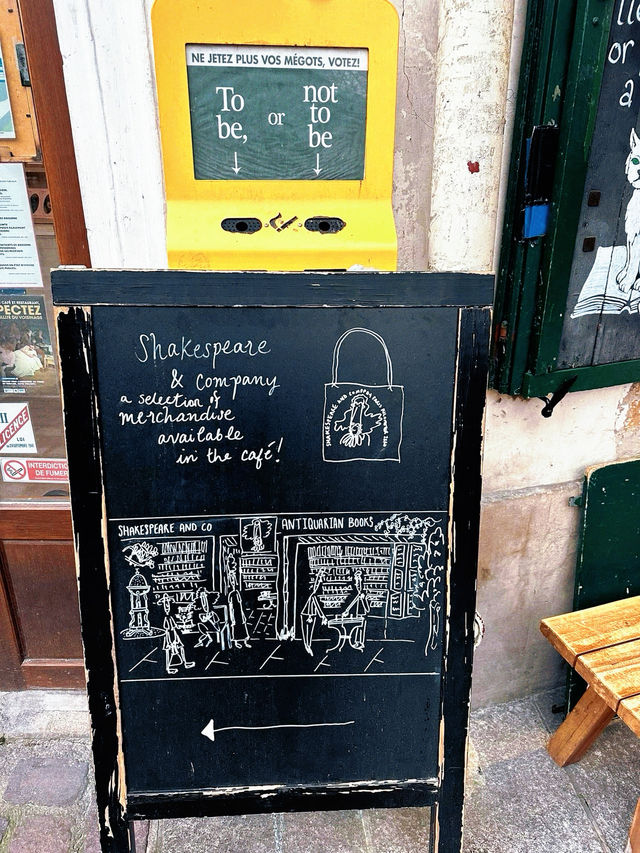 NE JETEZ PLUS VOS MÉGOTS, VOTEZ!
To be, or not to be
Shakespeare
& company
a selection of
merchandise
available
in the café!
SHAKESPEARE AND COMPANY
SHAKESPEARE AND CO
ANTIQUARIAN BOOKS
PECTEZ
LICENCE
INTERDICTIO
DE FUMER
or
a